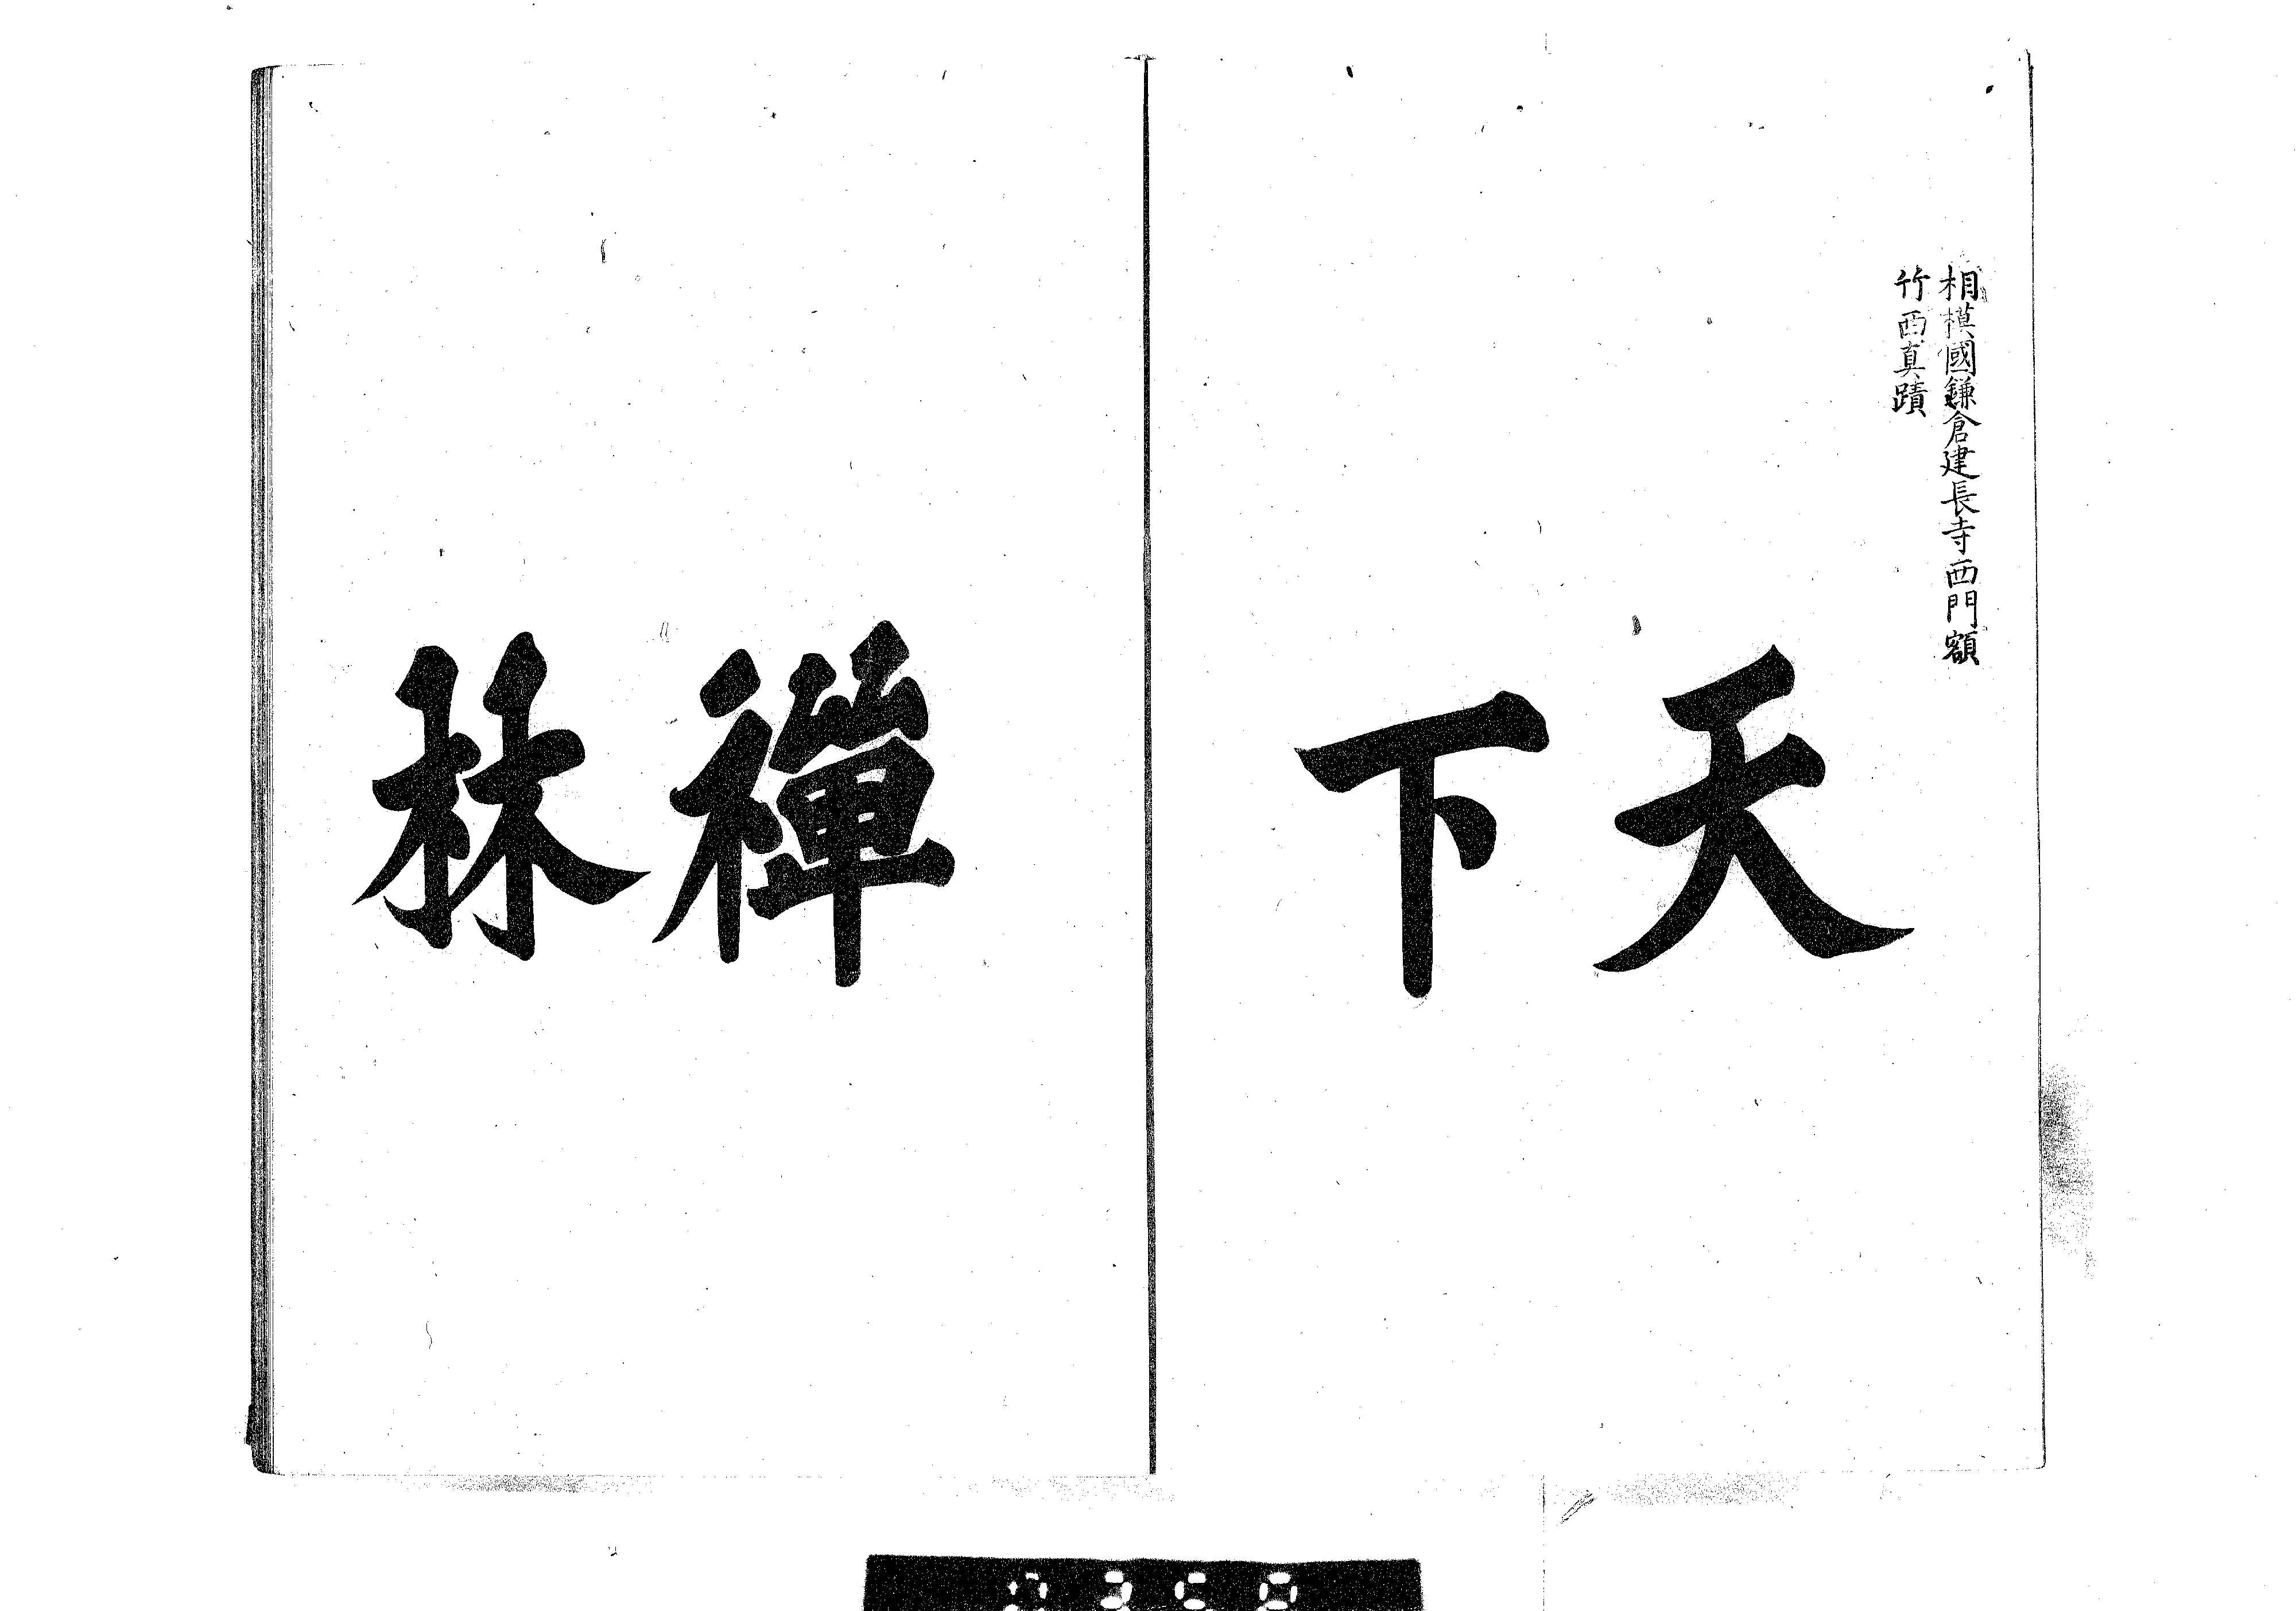 相模國鎌倉建長寺西門額
竹西真蹟
天下
禪林